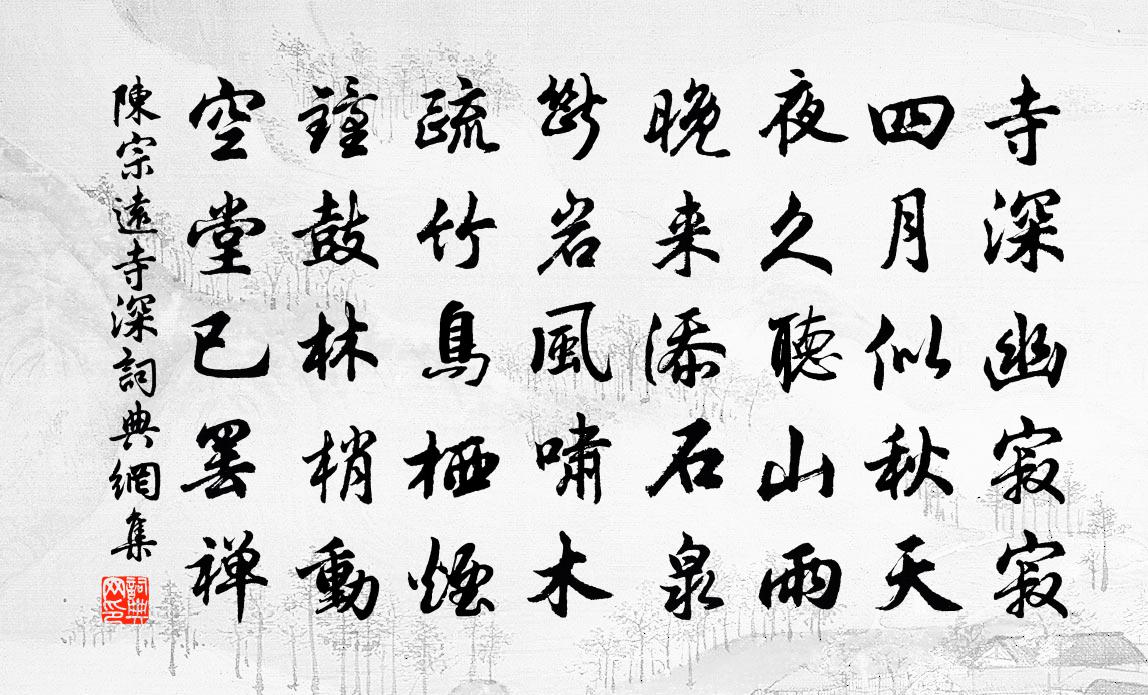 寺深幽寂寂
四月似秋天
夜久聽山雨
晚来添石泉
斷岩風嘯木
疏竹鳥栖煙
鐘鼓林梢動
空堂已罢禅
陳宗遠寺深詞典網集
詞典
网印